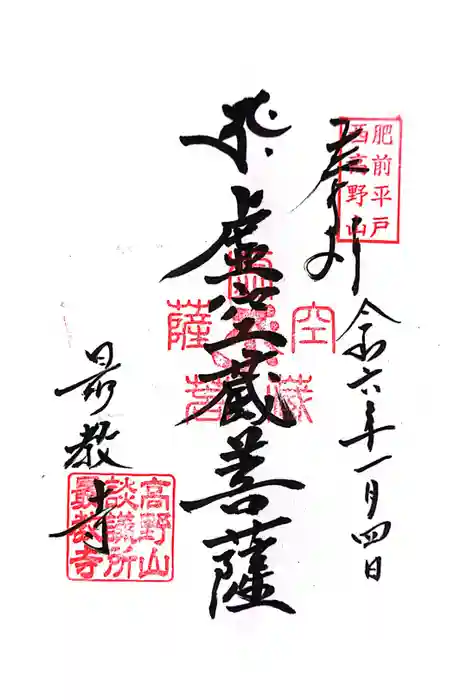 奉拝
肥前平戸
西高野山
令六年一月四日
虚空蔵菩薩
虚空蔵菩薩
最教寺
高野山
談議所
最教寺